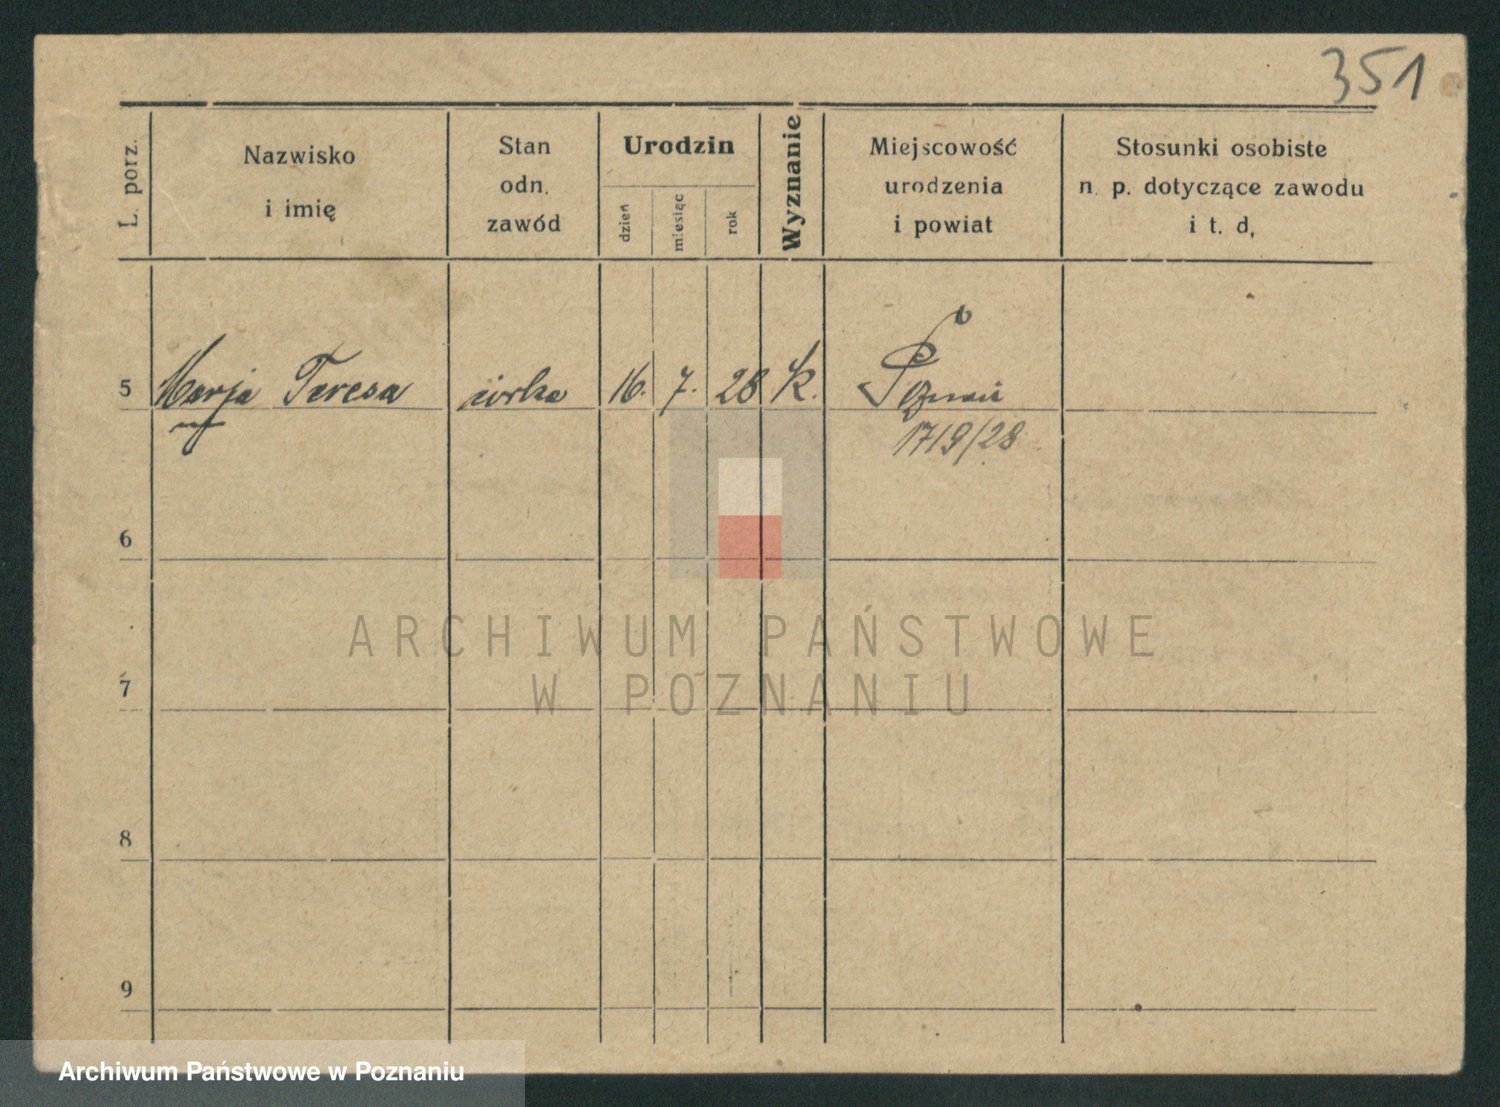 351
L. porz.
Nazwisko
i imię
Stan
odn.
zawód
Urodzin
dzień
miesiąc
rok
Wyznanie
Miejscowość
urodzenia
i powiat
Stosunki osobiste
n. p. dotyczące zawodu
i t. d,
5 Marja Teresa córka 16. 7. 28 K. Poznań
1719/28
6
7
8
9
ARCHIWUM PAŃSTWOWE
W POZNANIU
Archiwum Państwowe w Poznaniu